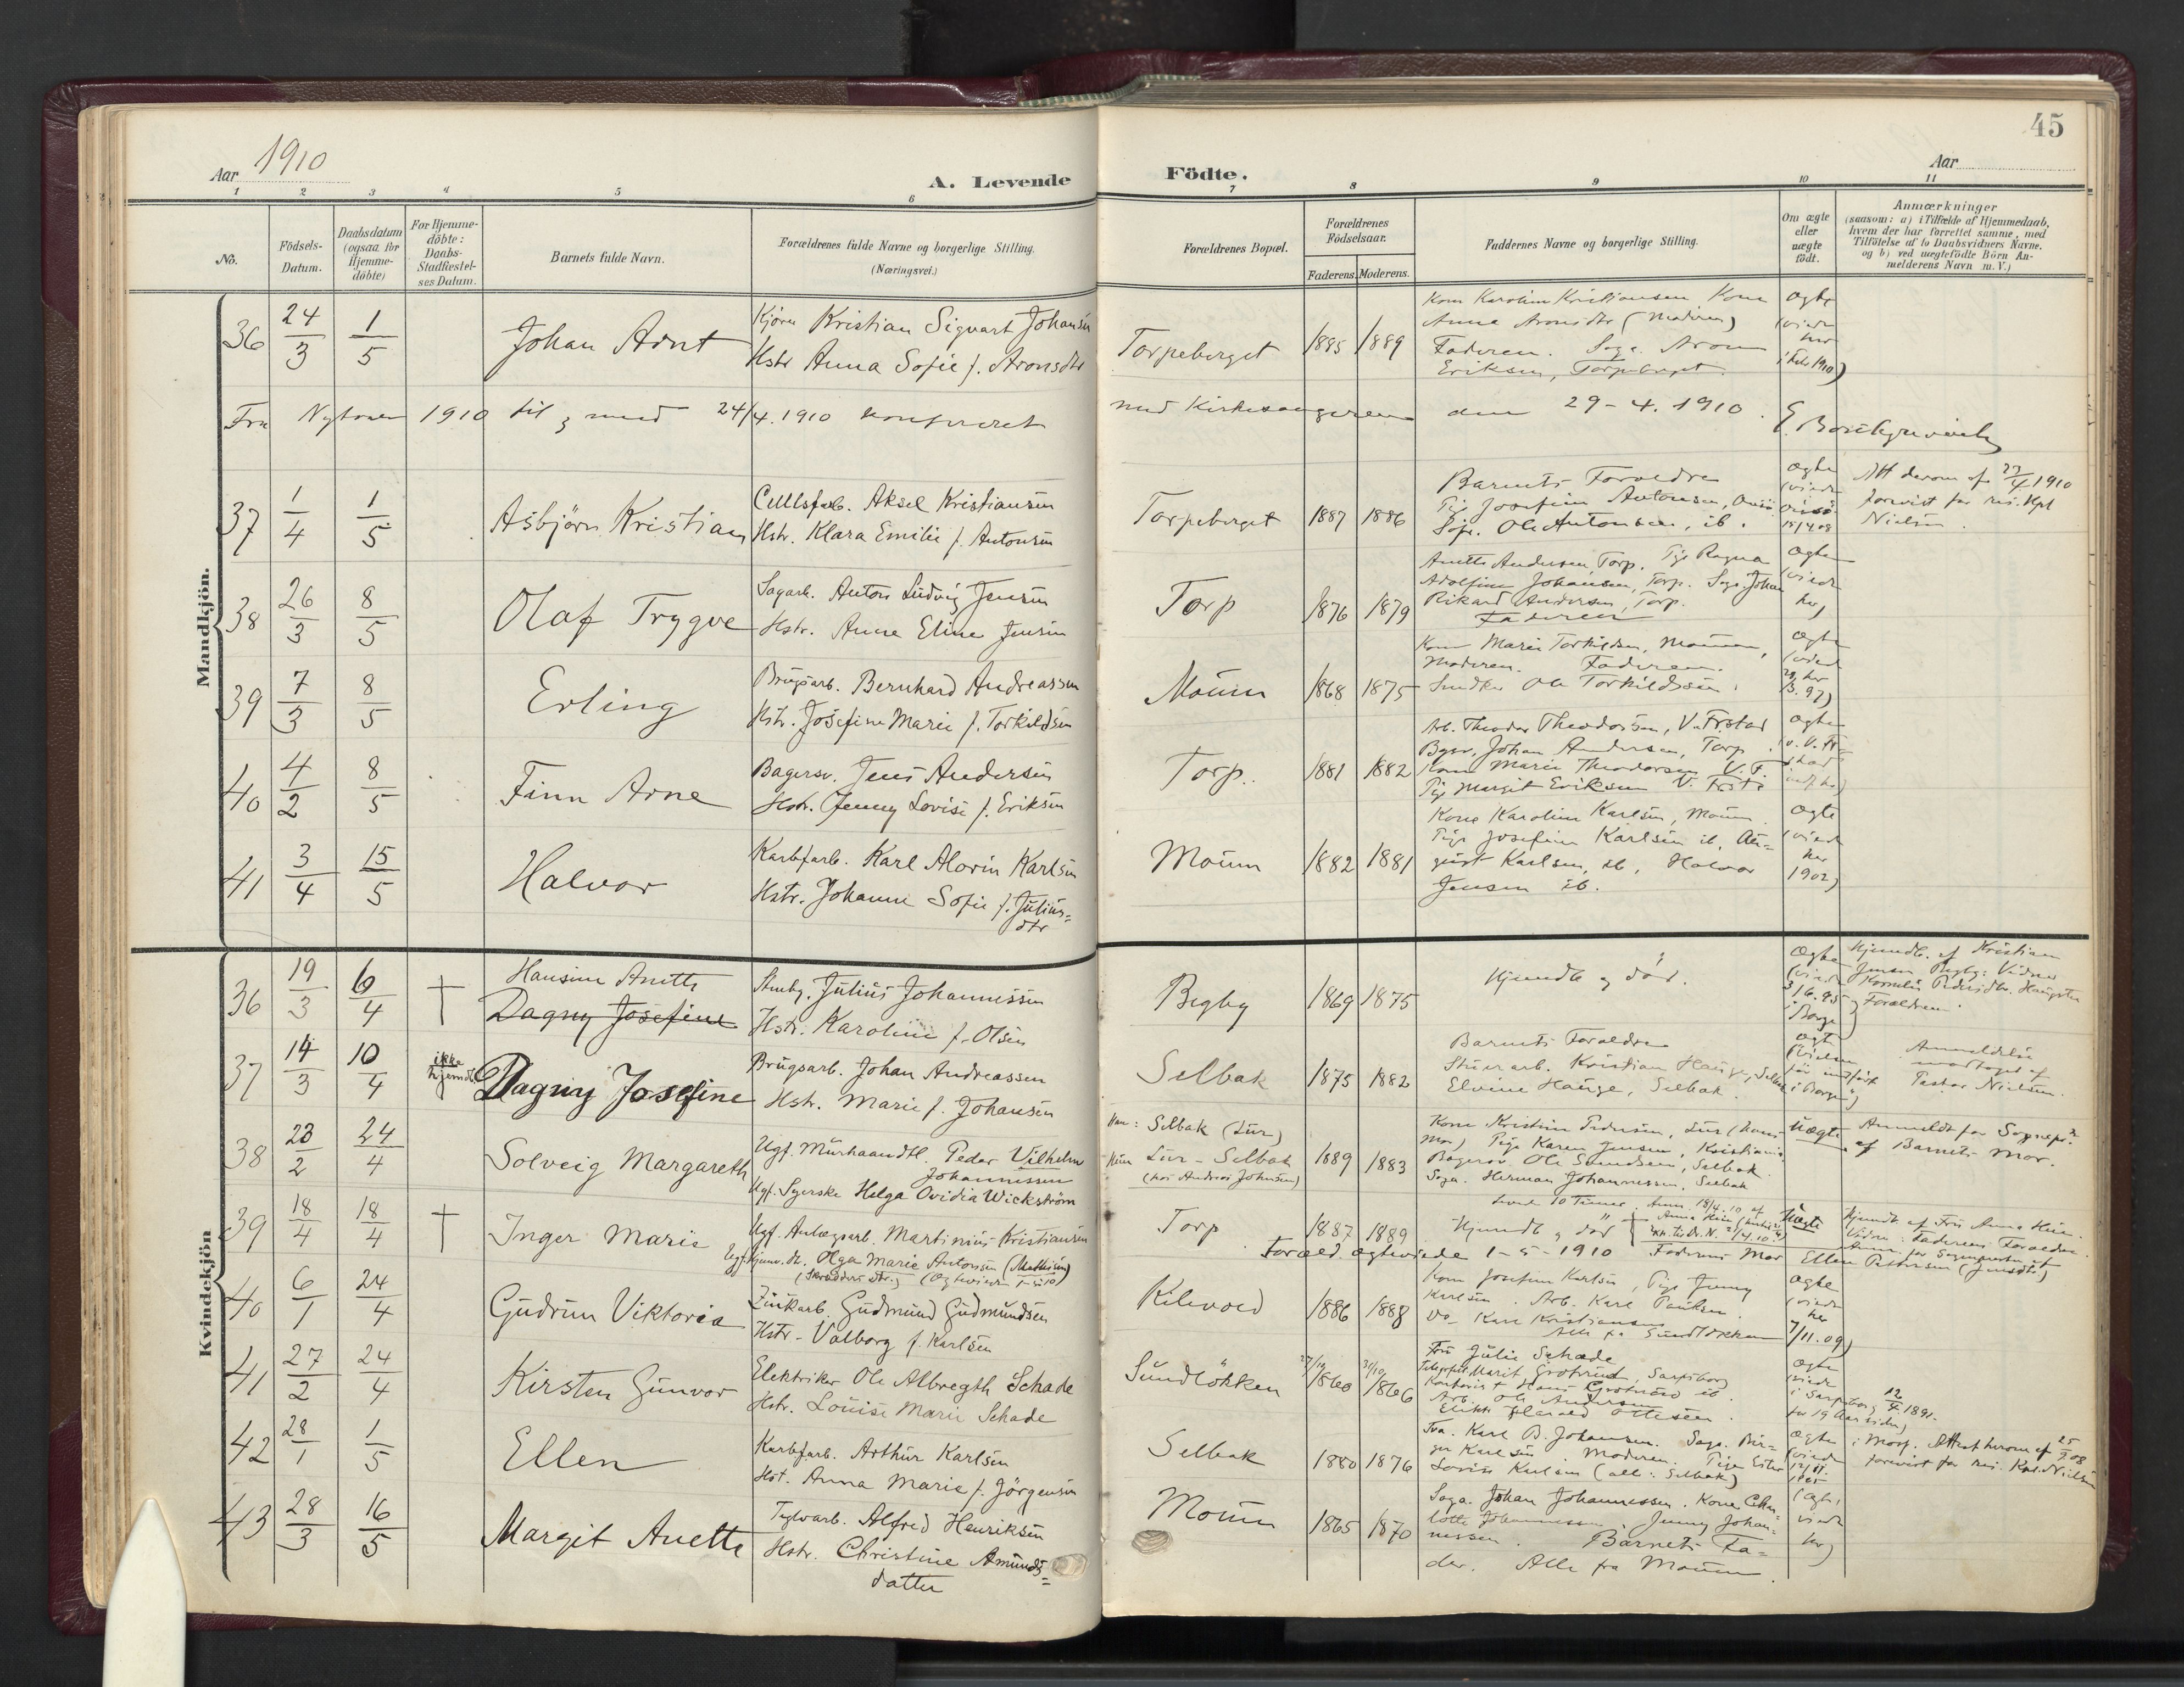 45
Aar 1910
A. Levende
Födte.
Aar
1 2 3 4 5 6 7 8 9 10 11
No.
Födsels-
Datum.
Daabsdatum
(ogsaa for
Hjemme-
döbte)
For Hjemme-
döbte:
Daabs-
Stadfæstel-
ses Datum.
Barnets fulde Navn.
Forældrenes fulde Navne og borgerlige Stilling.
(Næringsvei.)
Forældrenes Bopæl.
Forældrenes
Födselsaar.
Faderens. Moderens.
Faddernes Navne og borgerlige Stilling.
Om ægte
eller
uægte
født.
Anmærkninger
(saasom: a) i Tilfælde af Hjemmedaab,
hvem der har forrettet samme, med
Tilføielse af to Daabsvidners Navne.
og b) ved uægtefödte Börn An-
melderens Navn m. V.)
Mandkjön.
36 24/3 1/5 Johan Arnt
Kjörer Kristian Sigvart Johansen
Hstr Anna Sofie f. Aronsdtr
Torpeberget 1885 1889
Kone Karoline Kristiansen, Kone
Anna Aronsdtr (Moderen)
Faderen. Saga. Aron
Eriksen, Torpeberget.
ægte
(viede
her
i Feb 1910)
Fra Nytaar 1910 til & med 24/4. 1910 konfereret med Kirkesangeren den 29-4. 1910.
37 1/4 1/5 Asbjörn Kristian
Cellsfarb. Aksel Kristiansen
Hstr. Klara Emilie f. Antonsen
Torpeberget 1887 1886
Barnets Forældre
Pige Josefine Antonsen, Onsö
Ole Antonsen, ib.
ægte
(viede
Onsö
Att derom af 27/4 1910
forevist for res. Kpl
Nielsen.
38 26/3 8/5 Olaf Trygve
Sagarb. Anton Ludvig Jensen
Hstr. Anne Eline Jensen
Torp 1876 1879
Anette Andersen, Torp. Pige Ragna
Adolfine Johansen, Torp. Saga. Johan
Rikard Andersen, Torp.
Faderen
ægte
(viede
her)
39 7/3 8/5 Erling
Brugsarb. Bernhard Andreassen
Hstr. Josefine Marie f. Torkildsen
Moum 1868 1875
Kone Marie Torkildsen, Moum,
Moderen. Faderen.
Ole Torkildsen.
ægte
(viede
her
97)
40 4/2 8/5 Finn Arne
Bagersv. Jens Andersen
Hstr. Jenny Lovise f. Eriksen
Torp. 1881 1882
Arb. Theodor Theodorsen, V. Frstad
Bgsv. Johan Andersen, Torp.
Kone Marie Theodorsen V. F.
Pige Margit Eriksen V. Frst.
ægte
41 3/4 15/5 Halvor
Karbfarb. Karl Alorin Karlsen
Hstr. Johanne Sofie f. Julius=
dtr
Moum 1882 1881
Kone Karoline Karlsen, Moum.
Pige Josefine Karlsen ib, Au=
gust Karlsen, ib, Halvor
Jensen ib.
ægte
(viede
her
1902)
Kvindekjön
36 19/3 6/4 †
Hansine Anette
Dagny Josefine
Julius Johannessen
Hstr. Karoline f. Olsen
Begby 1869 1875
Hjemdb. og död.
ægte
(viede
3/6.95
i Borge)
Hjemdb. af Kristian
Jensen Begby: Vidner
Forældrene.
37 14/3 10/4 ikke
hjemdb.
Dagny Josefine
Brugsarb. Johan Andreassen
Hstr. Marie f. Johansen
Selbak 1875 1882
Barnets Forældre
Kristian Hauge, Selbak
Elvine Hauge, Selbak.
ægte
i Borge)
Anmeldelse
modtaget af
Pastor Nielsen.
38 23/2 24/4 Solveig Margareth
Ugf. Murhaandtl. Peder Vilhelm
Johannessen
Ugf. Syerske Helga Ovidia Wickström
Han: Selbak (Lur)
Hun Lur - Selbak
(hos Andreas Johnsen)
1889 1883
Kone Kristine Pedersen, Lur (hans
Mor) Pige Karen Jensen, Kristiania.
Bagersv. Ole Samdsen, Selbak.
Saga. Herman Johannessen, Selbak
Uægte
Anmeldt for Sognepr.
af Barnets Mor.
39 18/4 18/4 † Inger Marie
Ugf. Anlægsarb. Martinius Kristiansen
Ugf. Olga Marie Antonsen (Mathisen)
(Skrædder dtr.) (Ægteviede 1-5-10)
Torp 1887 1889
Levede 10 Timer. Anm. 18/4. 10 af
Hjemdb. og död
Uægte
Hjemdb. af Fru Anna
Vidne: Faderens Forældre
Foræld. ægteviede 1-5-1910 Faderens Mor Ellen Pettersen
40 6/1 24/4 Gudrun Viktoria
Zinkarb. Gudmund Gudmundsen
Hstr. Valborg f. Karlsen
Kilevold 1886 1888
Kone Josefine Karlsen, Pige Jenny
Karlsen. Arb. Karl Paulsen.
Do Karl Kristiansen
Alle fra Sundlökken
ægte
(viede
her
7/11.09)
41 27/2 24/4 Kirsten Gunvor
Elektriker Ole Albregth Schade
Hstr. Louise Marie Schade
Sundlökken 1860 1866
Fru Julie Schade
Marit Grotnæss, Sarpsborg
Kontorist Hans Grotnæss ib.
Arb. Ole Andersen
Elektr. Harald Ottesen.
ægte
viede
i Sarpsborg 12/4 1891.
for 19 Aar siden)
42 28/1 1/5 Ellen
Karbfarb. Arthur Karlsen
Hst. Anna Marie f. Jörgensen
Selbak 1880 1876
Fra. Karl B. Johansen. Saga. Bir=
ger Karlsen. Moderen. Pige Ester
Lovise Karlsen (alle: Selbak)
ægte
(viede
i Moss. Attest herom af
forevist for res. Kpl. Nielsen
43 28/3 16/5 Margit Anette
Teglvarb. Alfred Henriksen
Hstr. Christine Amunds=
datter
Moum 1865 1870
Saga. Johan Johannessen. Kone Char=
lotte Johannessen. Jenny Johan=
nessen. Barnets Fa=
der. Alle fra Moum.
(ægte,
viede
her)